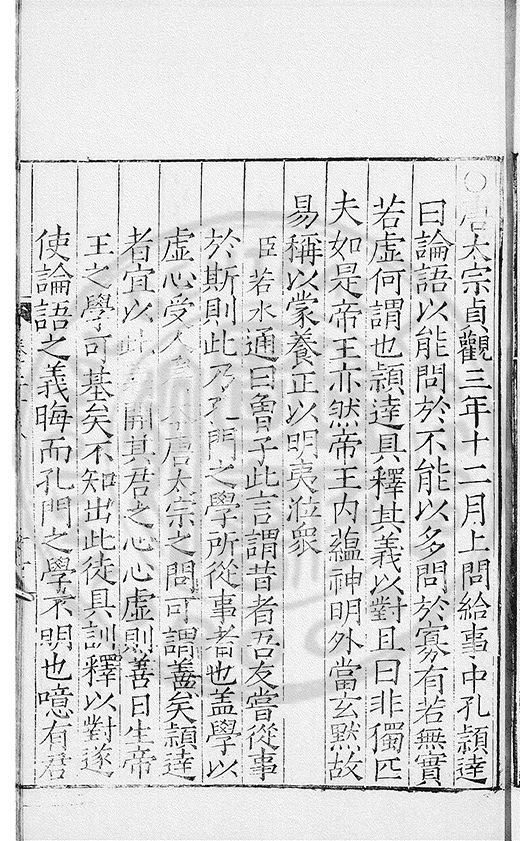 ○唐太宗貞觀三年十二月上問給事中孔頴達
曰論語以能問於不能以多問於寡有若無實
若虚何謂也頴達具釋其義以對且曰非獨匹
夫如是帝王亦然帝王内蘊神明外當玄黙故
易稱以蒙養正以明夷涖衆
臣若水通曰魯子此言謂昔者吾友嘗從事
於斯則此乃孔門之學所從事者也盖學以
虚心受人爲唐太宗之問可謂善矣頴達
者宜以此開其君之心心虚則善日生帝
王之學可基矣不知出此徒具訓釋以對遂
使論語之義晦而孔門之學不明也噫有君